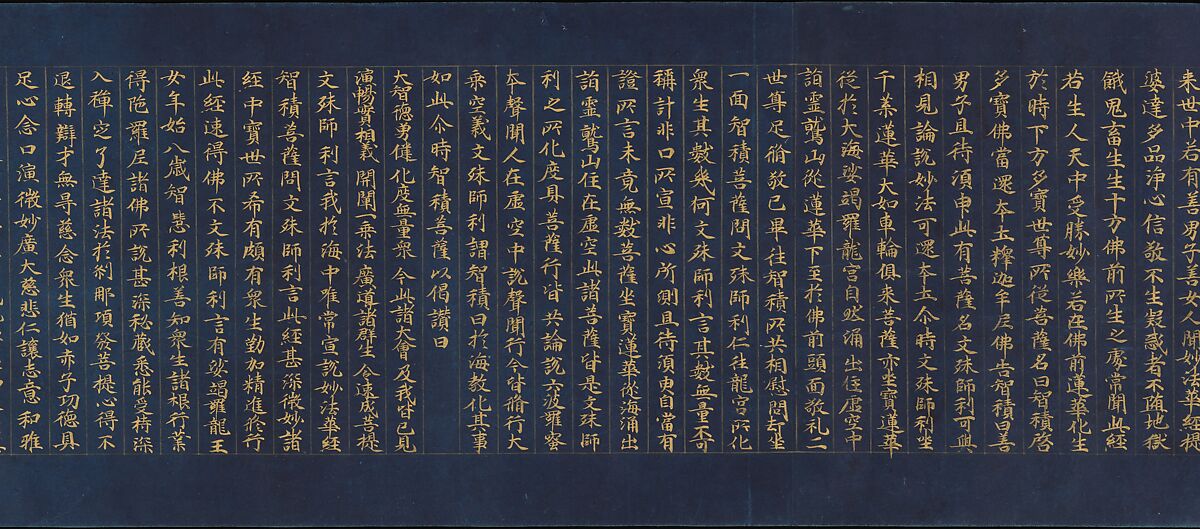 來世中若有善男子善女人聞妙法華經提
婆達多品淨心信敬不生疑惑者不堕地獄
餓鬼畜生生十方佛前所生之處常聞此經
若生人天中受勝妙樂若在佛前蓮華化生
於時下方多寶世尊所從菩薩名曰智積啓
多寶佛當還本土釋迦牟尼佛告智積曰善
男子且待須申此有菩薩名文殊師利可與
相見論說妙法可還本土尒時文殊師利坐
千葉蓮華大如車輪俱來菩薩亦坐寶蓮華
從於大海娑竭羅龍宮自然涌出住虛空中
詣靈鷲山從蓮華下至於佛前頭面敬礼二
世尊足脩敬已畢往智積所共相慰問却坐
一面智積菩薩問文殊師利仁往龍宮所化
衆生其數幾何文殊師利言其數無量不可
稱計非口所宣非心所測且待須臾自當有
證所言未竟無數菩薩坐寶蓮華從海涌出
詣靈鷲山住在虛空此諸菩薩皆是文殊師
利之所化度具菩薩行皆共論說六波羅蜜
本聲聞人在虛空中說聲聞行今皆脩行大
乘空義文殊師利謂智積曰於海教化其事
如此尒時智積菩薩以偈讚曰
大智德勇健 化度無量衆 今此諸大會 及我皆已見
演暢實相義 開闡一乘法 廣導諸群生 令速成菩提
文殊師利言我於海中唯常宣說妙法華經
智積菩薩問文殊師利言此經甚深微妙諸
經中寶世所希有頗有衆生勤加精進修行
此經速得佛不文殊師利言有娑竭羅龍王
女年始八歲智慧利根善知衆生諸根行業
得陁羅尼諸佛所說甚深秘藏悉能受持深
入禪定了達諸法於剎那頃發菩提心得不
退轉辯才無㝵慈念衆生猶如赤子功德具
足心念口演微妙廣大慈悲仁讓志意和雅